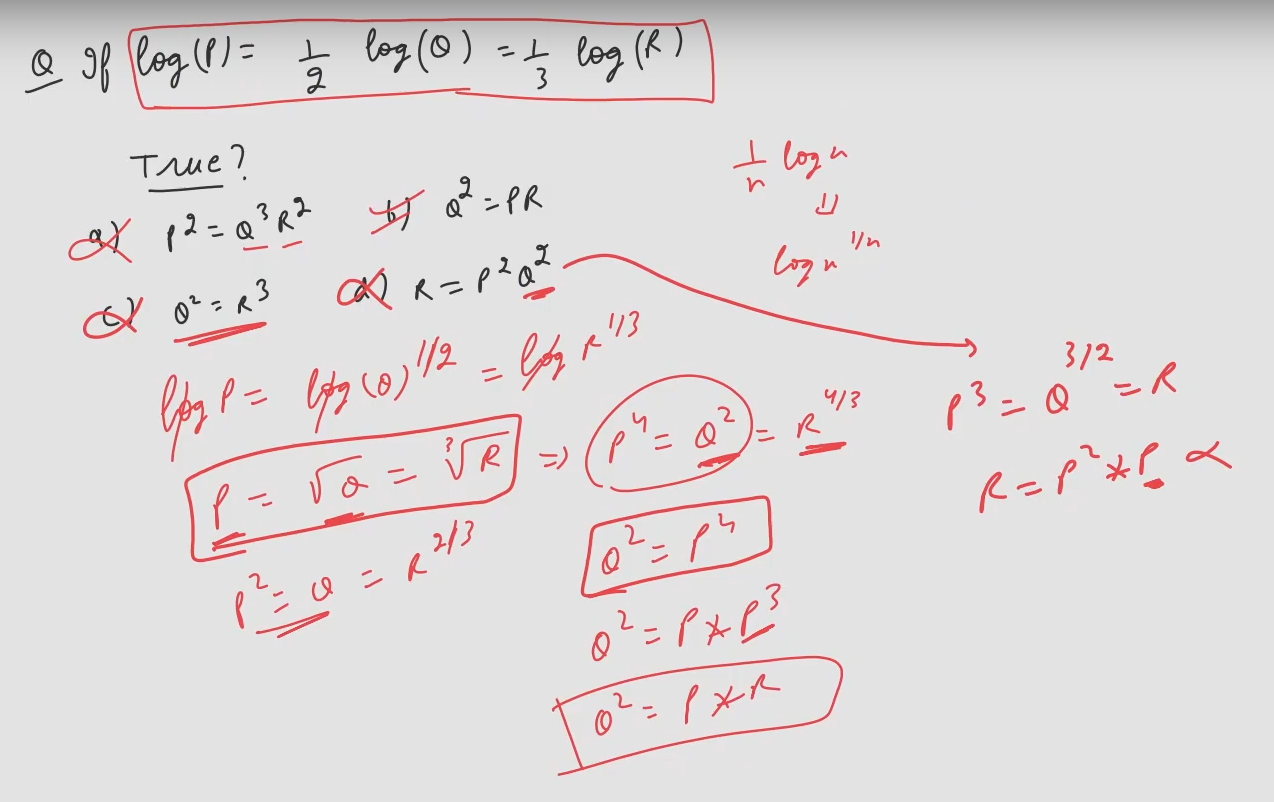 Q If log(P) = 1/2 log(Q) = 1/3 log(R)
True?
a) P² = Q³R² b) Q² = PR
c) Q² = R³ d) R = P²Q²
1/n log n
⇓
log n^1/n
log P = log(Q)^1/2 = log R^1/3
P = √Q = ∛R ⇒ P⁴ = Q² = R^4/3
P² = Q = R^2/3
Q² = P⁴
Q² = P * P³
Q² = P * R
P³ = Q^3/2 = R
R = P² * P